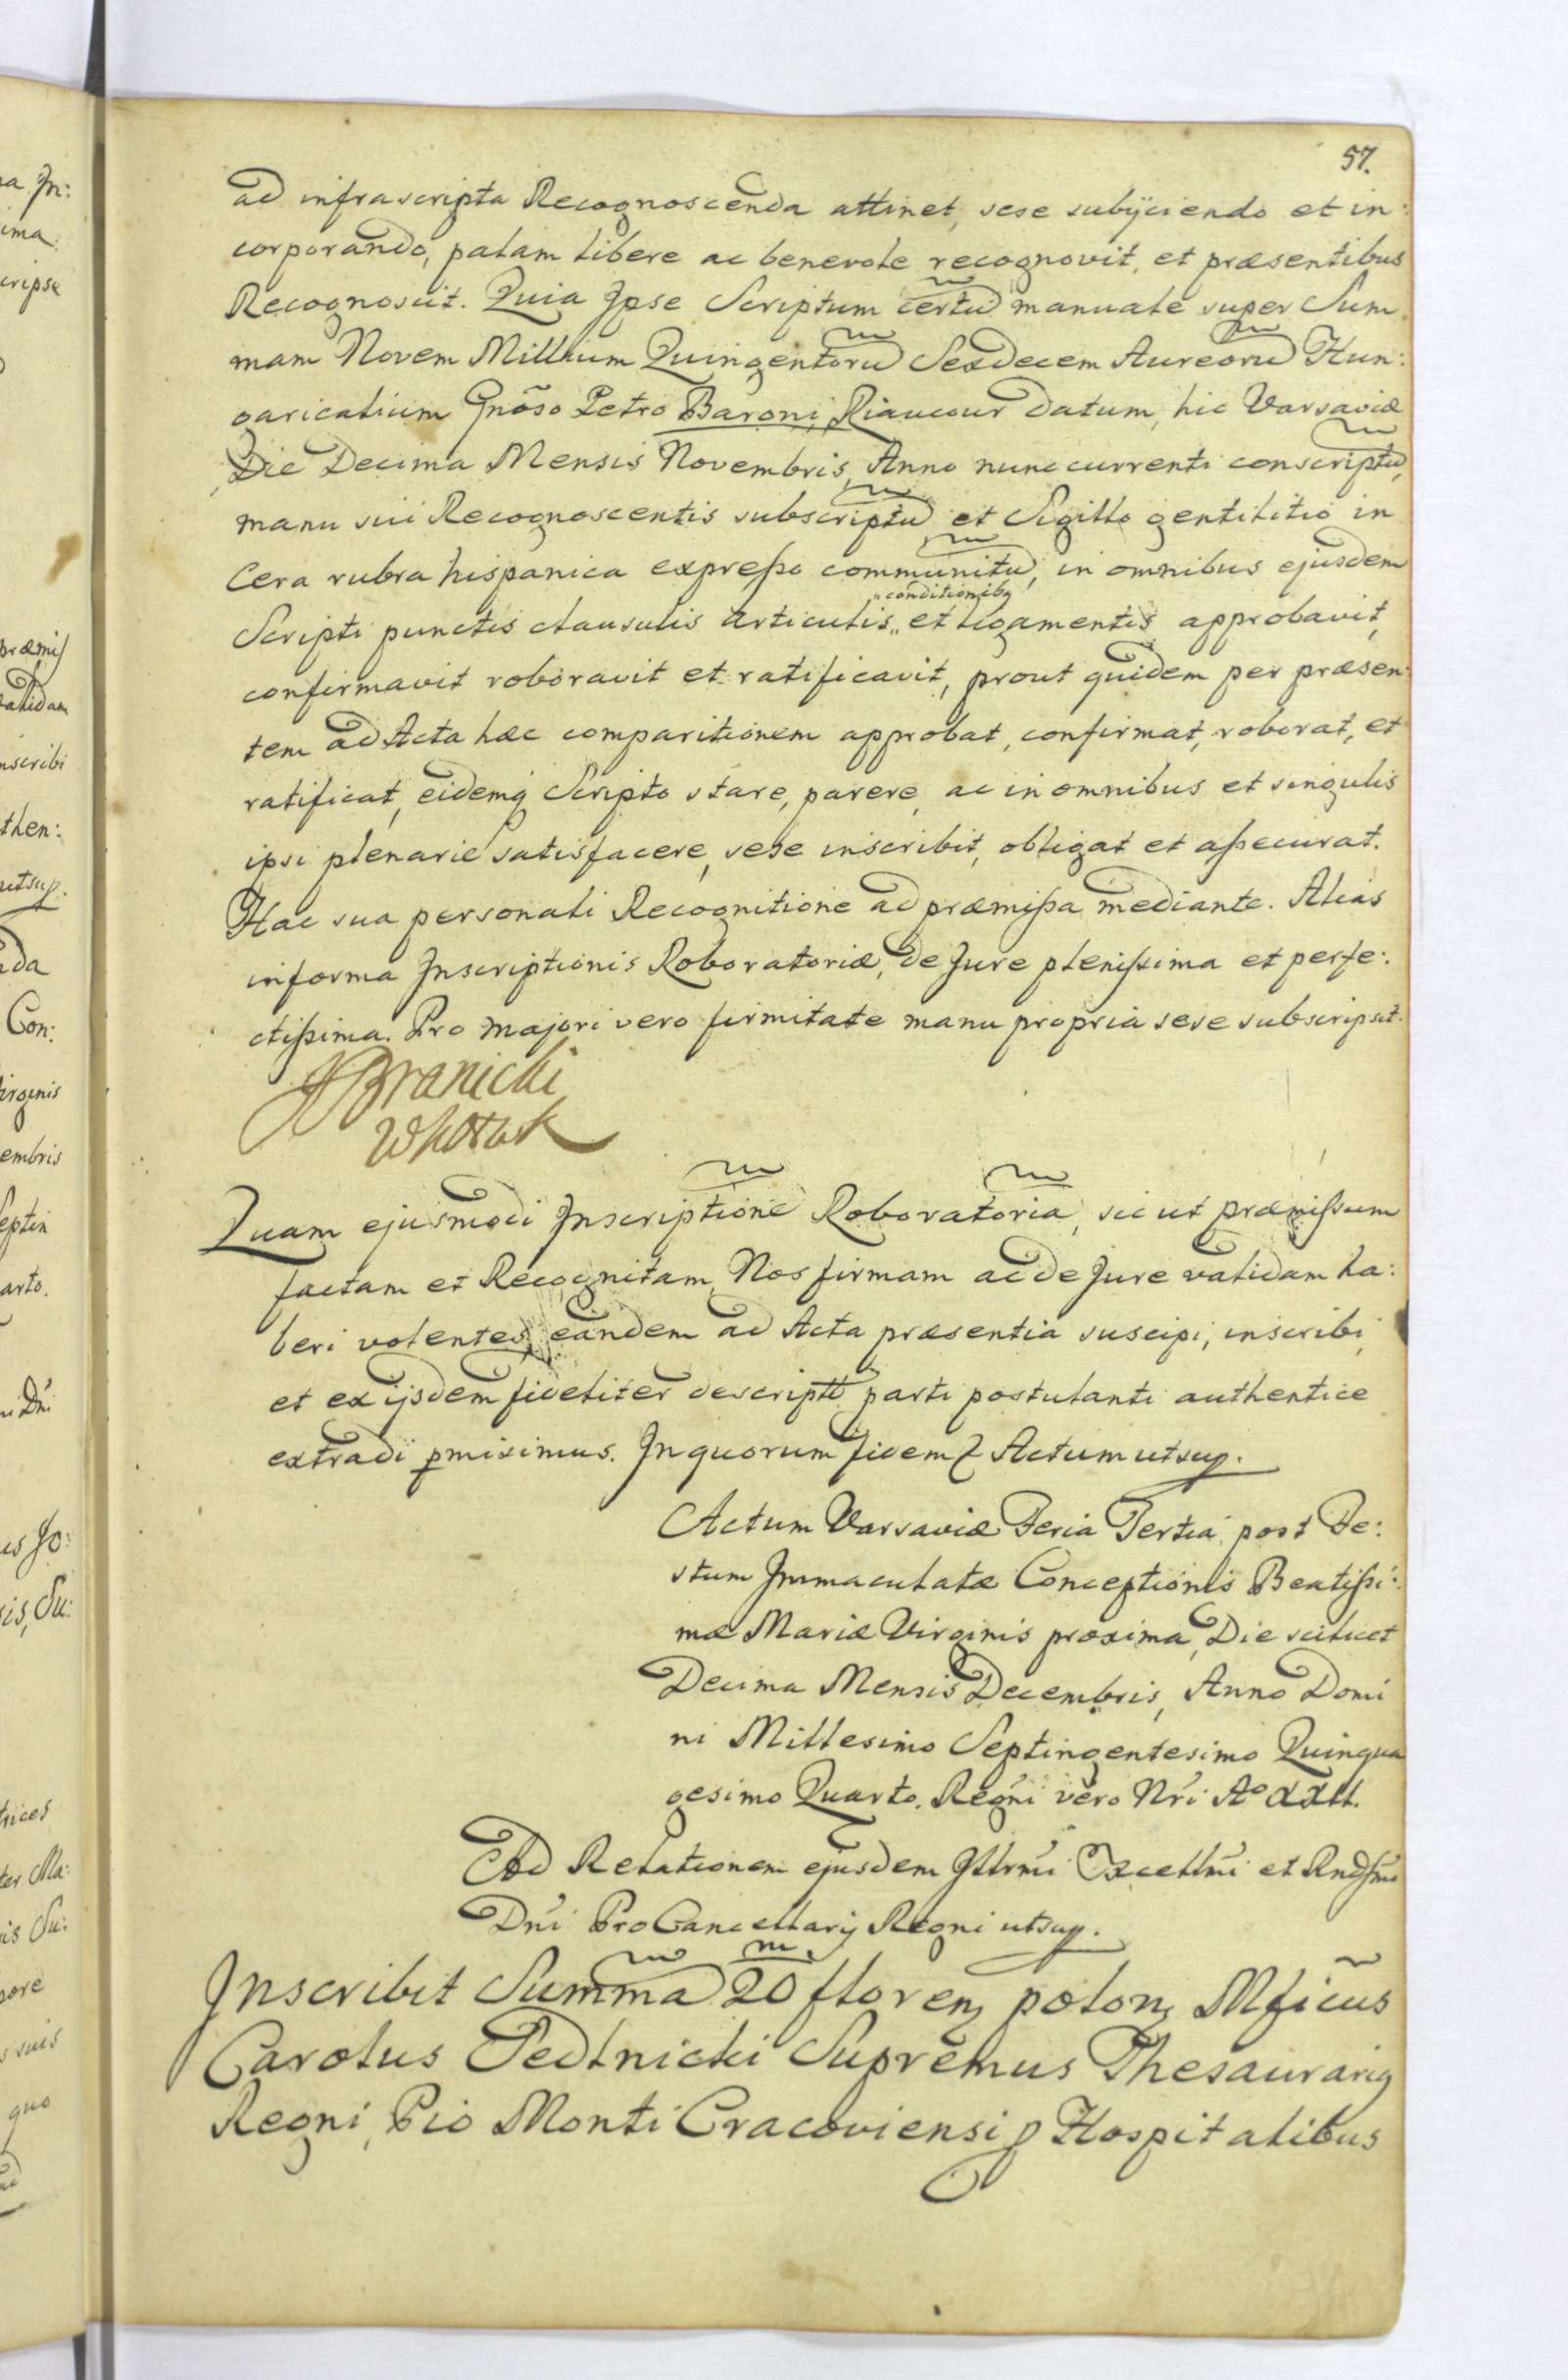 57.
ad infrascripta Recognoscenda attinet, sese subÿciendo et in:
corporando, palam libere ac benevole recognovit, et præsentibus
Recognoscit. Quia Ipse Scriptum certũ manuale super Sum
mam Novem Millium Quingentorũ Sexdecem Aureorũ Hun:
garicalium Gnõso Petro Baroni Riaucour datum, hic Varsaviæ
Die Decima Mensis Novembris, Anno nunc currenti conscriptũ,
manu sui Recognoscentis subscriptũ et Sigillo gentilitio in
Cera rubra hispanica expresso communitũ, in omnibus ejusdem
Scripti punctis clausulis articulis „conditionibꝫ„ et ligamentis approbavit,
confirmavit roboravit et ratificavit, prout quidem per præsen
tem ad Acta hæc comparitionem approbat, confirmat, roborat, et
ratificat, eidemq Scripto stare, parere, ac in omnibus et singulis
ipsi plenarie satisfacere, sese inscribit, obligat et assecurat.
Hac sua personali Recognitione ad præmissa mediante. Alias
in forma Inscriptionis Roboratoriæ, de Jure plenissima et perfe:
ctissima. Pro majori vero firmitate manu propria sese subscripsit.
Branicki
Quam ejusmodi Inscriptionẽ Roboratoriã, sicut præmissum
factam et Recognitam, Nos firmam ac de Jure validam ha:
beri volentes, eandem ad Acta præsentia suscipi, inscribi,
et ex ijsdem fideliter descriptã parti postulanti authentice
extradi ꝑmisimus. In quorum fidem Actum utsup.
Actum Varsaviæ Feria Tertia post Fe:
stum Immaculatæ Conceptionis Beatissi:
mæ Mariæ Virginis proxima, Die scilicet
Decima Mensis Decembris, Anno Domi
ni Millesimo Septingentesimo Quinqua
gesimo Quarto. Regni vero Nri Aº XXII.
Ad Relationem ejusdem Illrmi Excellmi et Rndsmi
Dni ProCancellarij Regni utsup.
Inscribit Summã 20/m. florenꝫ polonꝫ Mficus
Carolus Sedlnicki Supremus Thesaurariꝫ
Regni, Pio Monti Cracoviensi ꝑ Hospitalibus